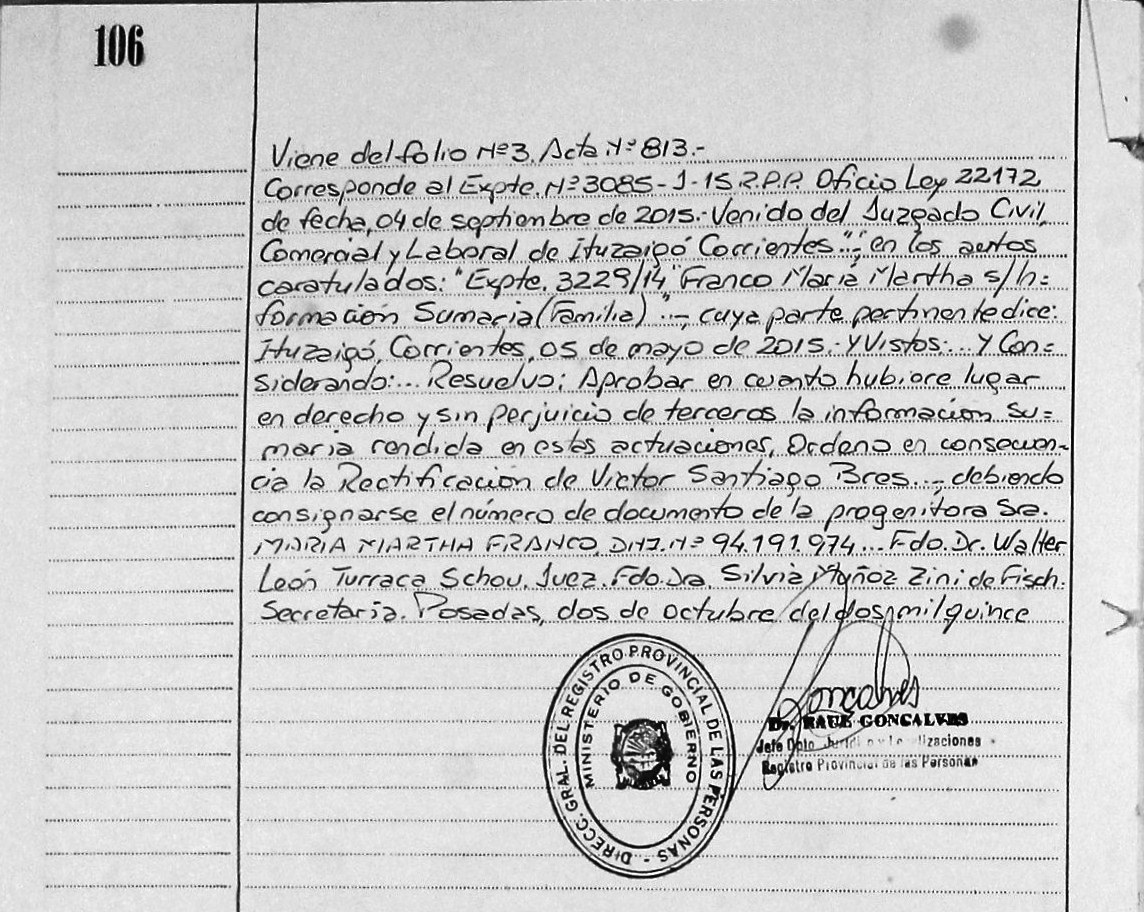 106
Viene del folio Nº3. Acta Nº 813.-
Corresponde al Expte. Nº3085-J-15 R.P.P. Oficio Ley 22172
de fecha, 04 de septiembre de 2015.- Venido del Juzgado Civil,
Comercial y Laboral de Ituzaigó Corrientes".-, en los autos
caratulados: "Expte. 3229/14 "Franco María Martha s/In=
formación Sumaria (Familia) ".-, cuya parte pertinente dice:
Ituzaigó, Corrientes, 05 de mayo de 2015.- Y Vistos:... Y Con=
siderando:... Resuelvo: Aprobar en cuanto hubiere lugar
en derecho y sin perjuicio de terceros la información Su=
maria rendida en estas actuaciones, Ordeno en consecuen-
cia la Rectificación de Victor Santiago Bres..., debiendo
consignarse el número de documento de la progenitora Sra.
MARIA MARTHA FRANCO, DNI. Nº 94.191.974... Fdo. Dr. Walter
León Turraca Schou. Juez. Fdo. Dra. Silvia Muñoz Zini de Fisch.
Secretaria. Posadas, dos de octubre del dos mil quince
DIRECC. GRAL. DEL REGISTRO PROVINCIAL DE LAS PERSONAS -
MINISTERIO DE GOBIERNO
Goncalves
Dr. RAUL GONCALVES
Jefe Dpto. Jurídico y Legalizaciones
Registro Provincial de las Personas